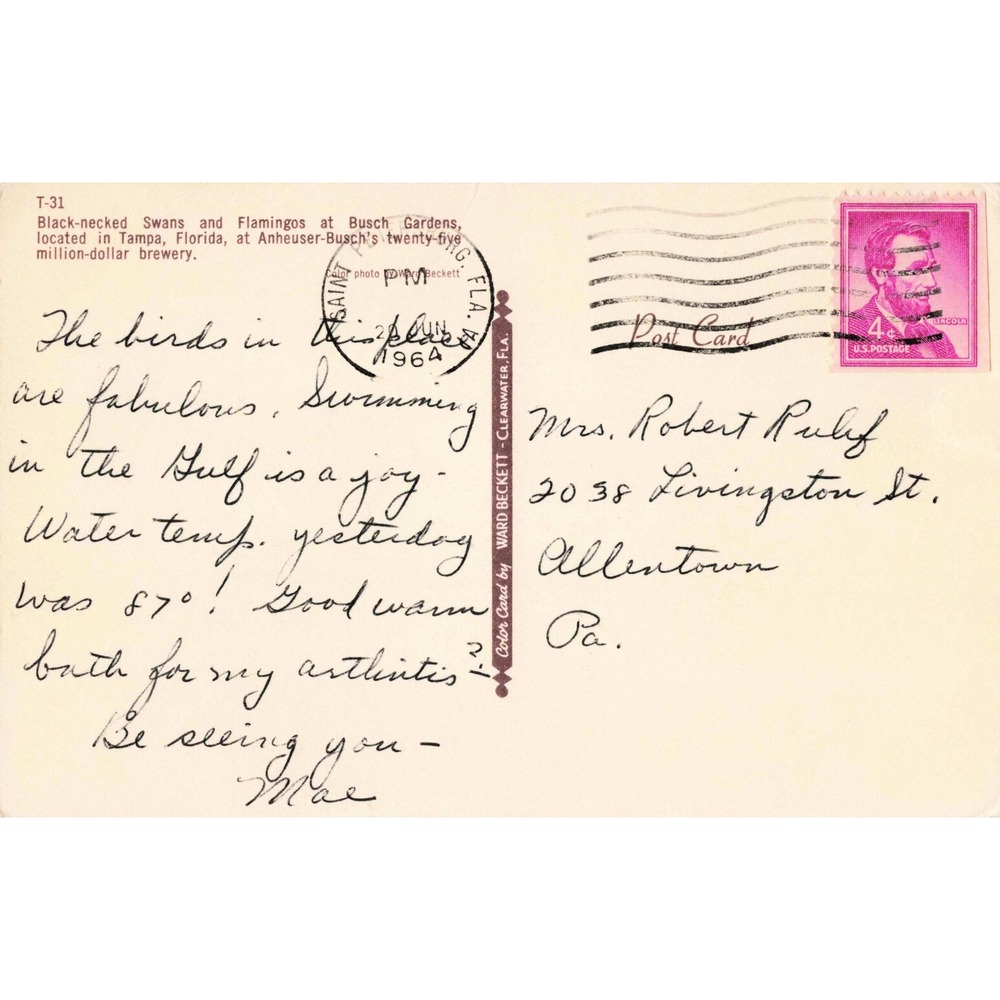 T-31
Black-necked Swans and Flamingos at Busch Gardens,
located in Tampa, Florida, at Anheuser-Busch's twenty-five
million-dollar brewery.
Color photo by Ward Beckett
SAINT PETERSBURG, FLA.
PM
JUN
1964
The birds in this place
are fabulous. Swimming
in the Gulf is a joy -
Water temp. yesterday
was 87°! Good warm
bath for my arthritis?!
Be seeing you -
Mae
Color Card by WARD BECKETT - CLEARWATER, FLA.
Post Card
LINCOLN
4¢
U.S. POSTAGE
Mrs. Robert Rulf
2038 Livingston St.
Allentown
Pa.